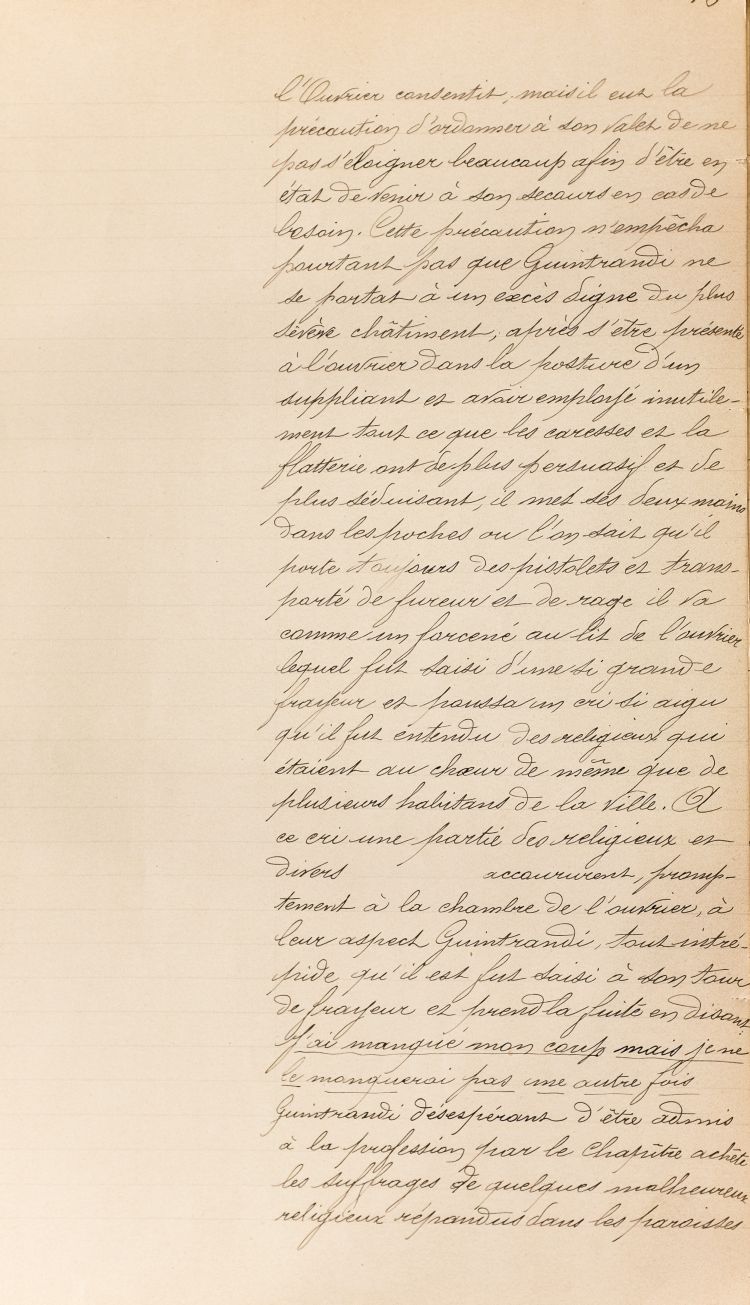 l'Ouvrier consentit, mais il eut la
précaution d'ordonner à son valet de ne
pas s'éloigner beaucoup afin d'être en
état de venir à son secours en cas de
besoin. Cette précaution n'empêcha
pourtant pas que Guintrandi ne
se portat à un excès digne du plus
sévère châtiment, après s'être présenté
à l'ouvrier dans la posture d'un
suppliant et avoir employé inutile-
ment tout ce que les caresses et la
flatterie ont de plus persuasif et de
plus séduisant, il met ses deux mains
dans les poches ou l'on sait qu'il
porte toujours des pistolets et trans-
porté de fureur et de rage il va
comme un forcené au lit de l'ouvrier
lequel fut saisi d'une si grande
frayeur et poussa un cri si aigu
qu'il fut entendu des religieux qui
étaient au chœur de même que de
plusieurs habitans de la ville. A
ce cri une partie des religieux et
divers accoururent, promp-
tement à la chambre de l'ouvrier, à
leur aspect Guintrandi, tout intré-
pide qu'il est fut saisi à son tour
de frayeur et prend la fuite en disant
J'ai manqué mon coup mais je ne
le manquerai pas une autre fois
Guintrandi désespérant d'être admis
à la profession par le Chapître achète
les suffrages de quelques malheureux
religieux répandus dans les paroisses